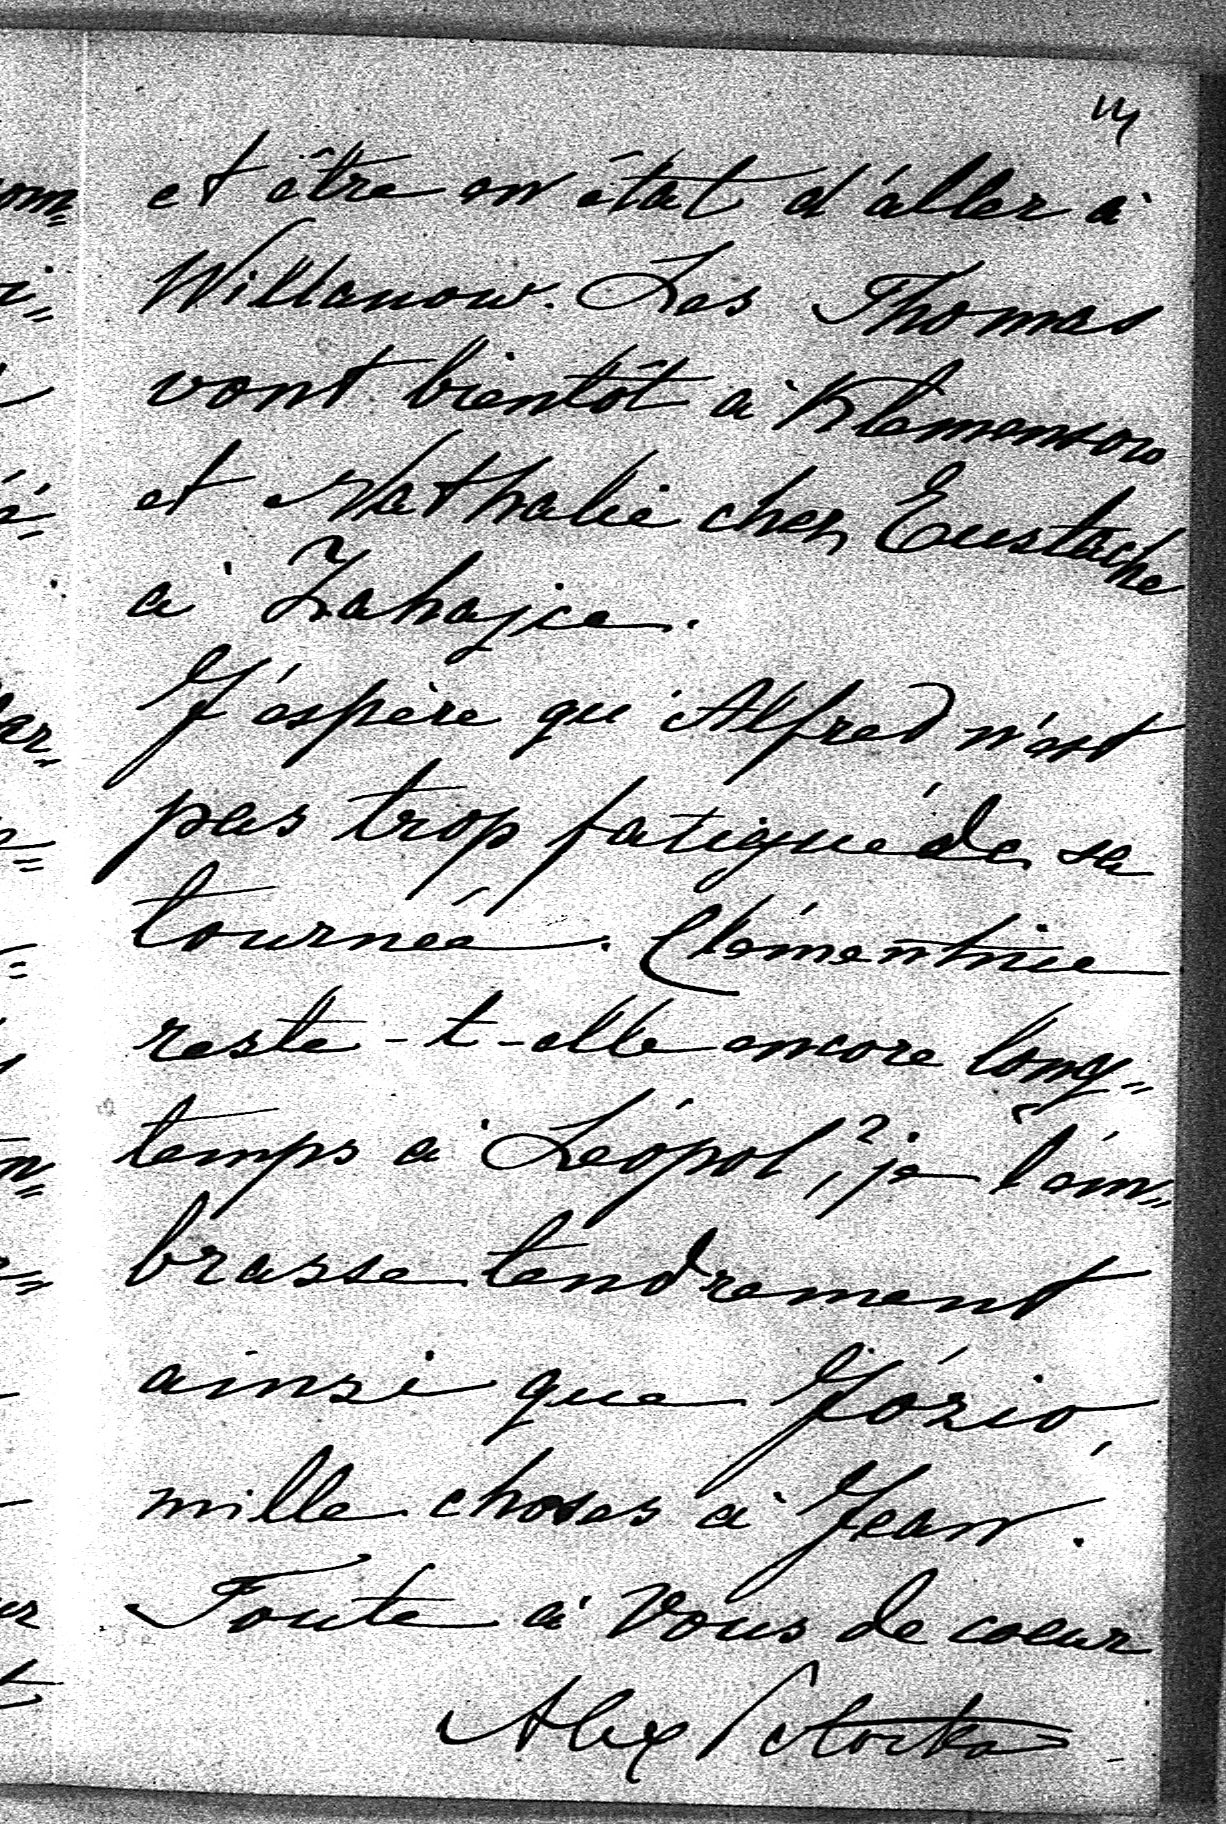 et être en état d'aller à
Willanow. Les Thomas
vont bientôt à Klemensow
et Nathalie chez Eustache
à Zahajce.
J'espère qu'Alfred n'est
pas trop fatigué de sa
tournée. Clémentine
reste-t-elle encore long=
temps à Léopol, ? je l'em=
brasse tendrement
ainsi que Józio,
mille choses à Jean.
Toute à Vous de coeur
Alex Potocka